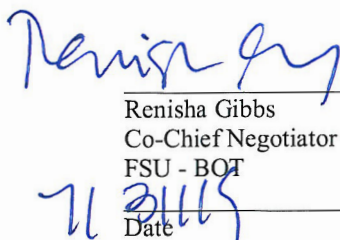 Renisha Gibbs
Co-Chief Negotiator
FSU - BOT
Date